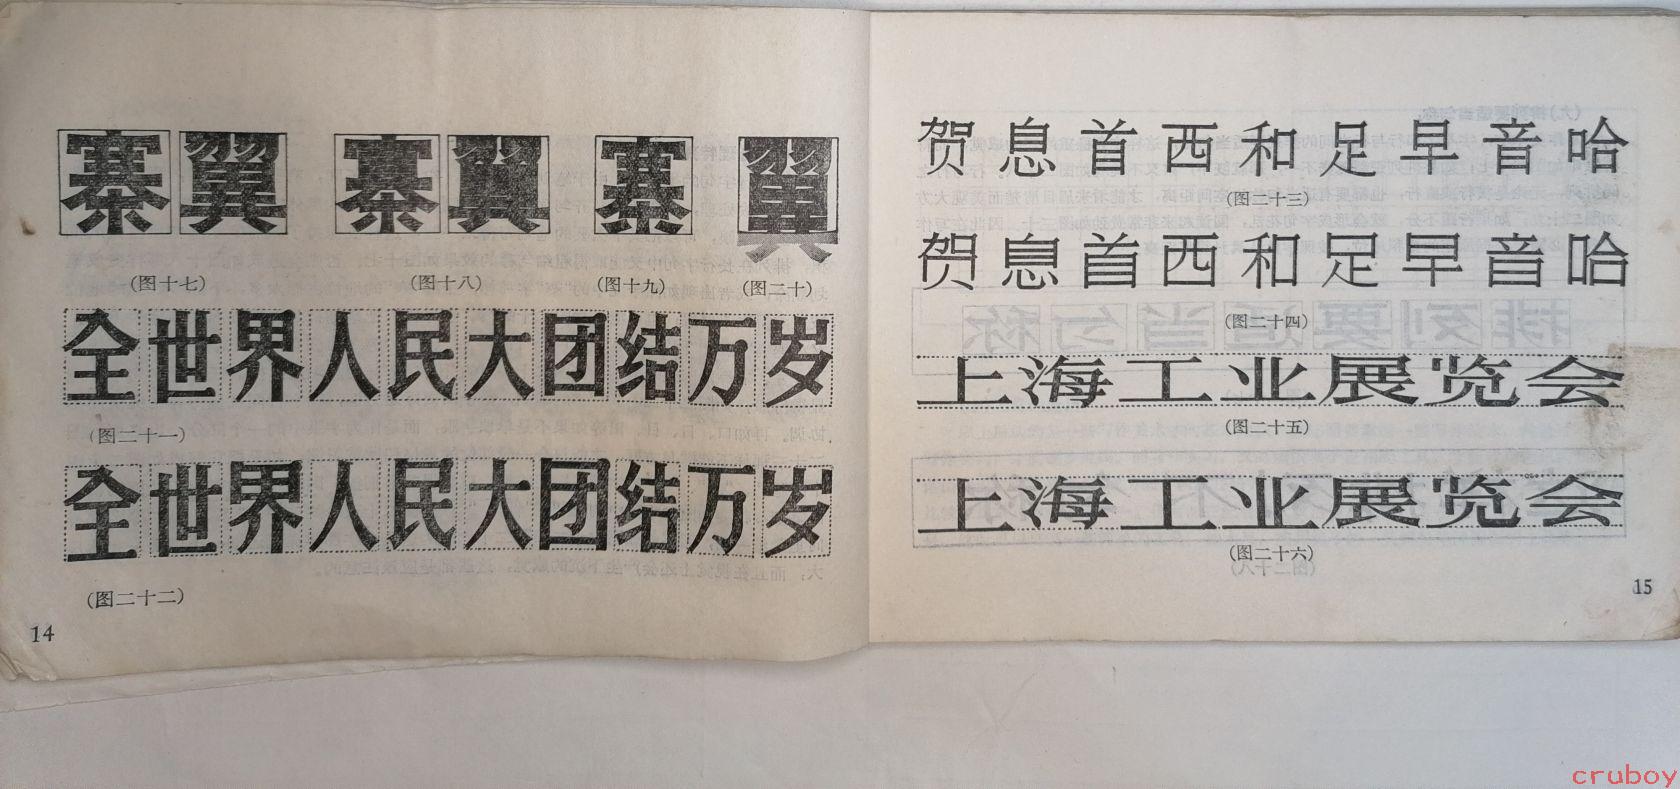 寨翼 寨翼 寨 翼
(图十七) (图十八) (图十九) (图二十)
全世界人民大团结万岁
(图二十一)
全世界人民大团结万岁
(图二十二)
14
贺息首西和足早音哈
(图二十三)
贺息首西和足早音哈
(图二十四)
上海工业展览会
(图二十五)
上海工业展览会
(图二十六)
15
cruboy